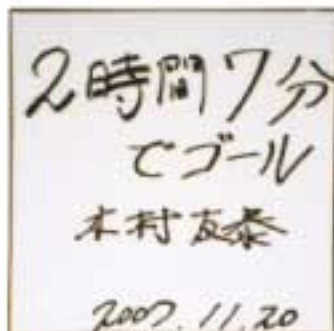 2時間7分
でゴール
木村友泰
2007.11.20